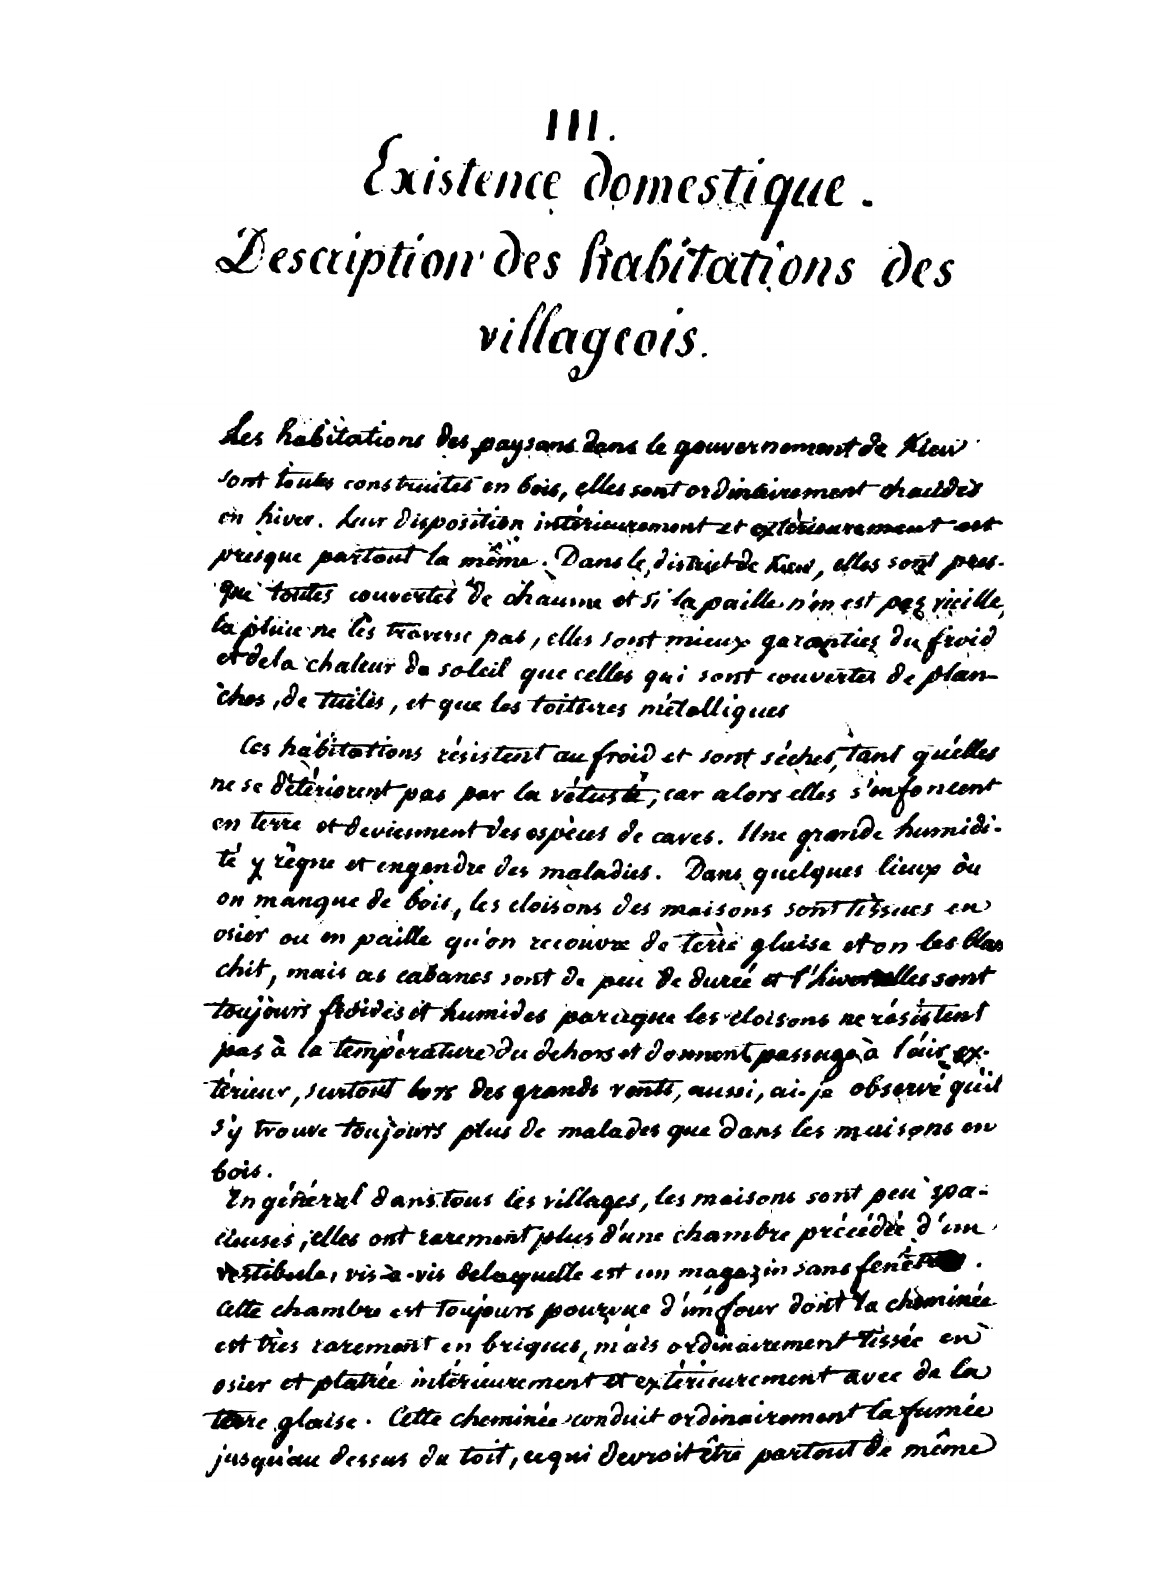 III.
Existence domestique.
Description des habitations des
villageois.
Les habitations des paysans dans le gouvernement de Kiew
sont toutes construites en bois, elles sont ordinairement chaudes
en hiver. Leur disposition intérieurement et extérieurement est
presque partout la même. Dans le district de Kiew, elles sont pres-
que toutes couvertes de chaume et si la paille n'en est pas vieille,
la pluie ne les traverse pas, elles sont mieux garanties du froid
et de la chaleur du soleil que celles qui sont couvertes de plan-
ches, de tuiles, et que les toitures métalliques
Ces habitations résistent au froid et sont sèches, tant qu'elles
ne se détériorent pas par la vétusté, car alors elles s'enfoncent
en terre et deviennent des espèces de caves. Une grande humidi-
té y règne et engendre des maladies. Dans quelques lieux où
on manque de bois, les cloisons des maisons sont tissues en
osier ou en paille qu'on recouvre de terre glaise et on les blan
chit, mais ces cabanes sont de peu de durée et l'hiver elles sont
toujours froides et humides parceque les cloisons ne résistent
pas à la température du dehors et donnent passage à l'air ex-
térieur, surtout lors des grands vents, aussi, ai-je observé qu'il
s'y trouve toujours plus de malades que dans les maisons en
bois.
En général dans tous les villages, les maisons sont peu spa-
cieuses, elles ont rarement plus d'une chambre précédée d'un
vestibule, vis-à-vis de laquelle est un magazin sans fenêtres.
Cette chambre est toujours pourvue d'un four dont la cheminée
est très rarement en briques, mais ordinairement tissée en
osier et platrée intérieurement et extérieurement avec de la
terre glaise. Cette cheminée conduit ordinairement la fumée
jusqu'au dessus du toit, ce qui devroit être partout de même